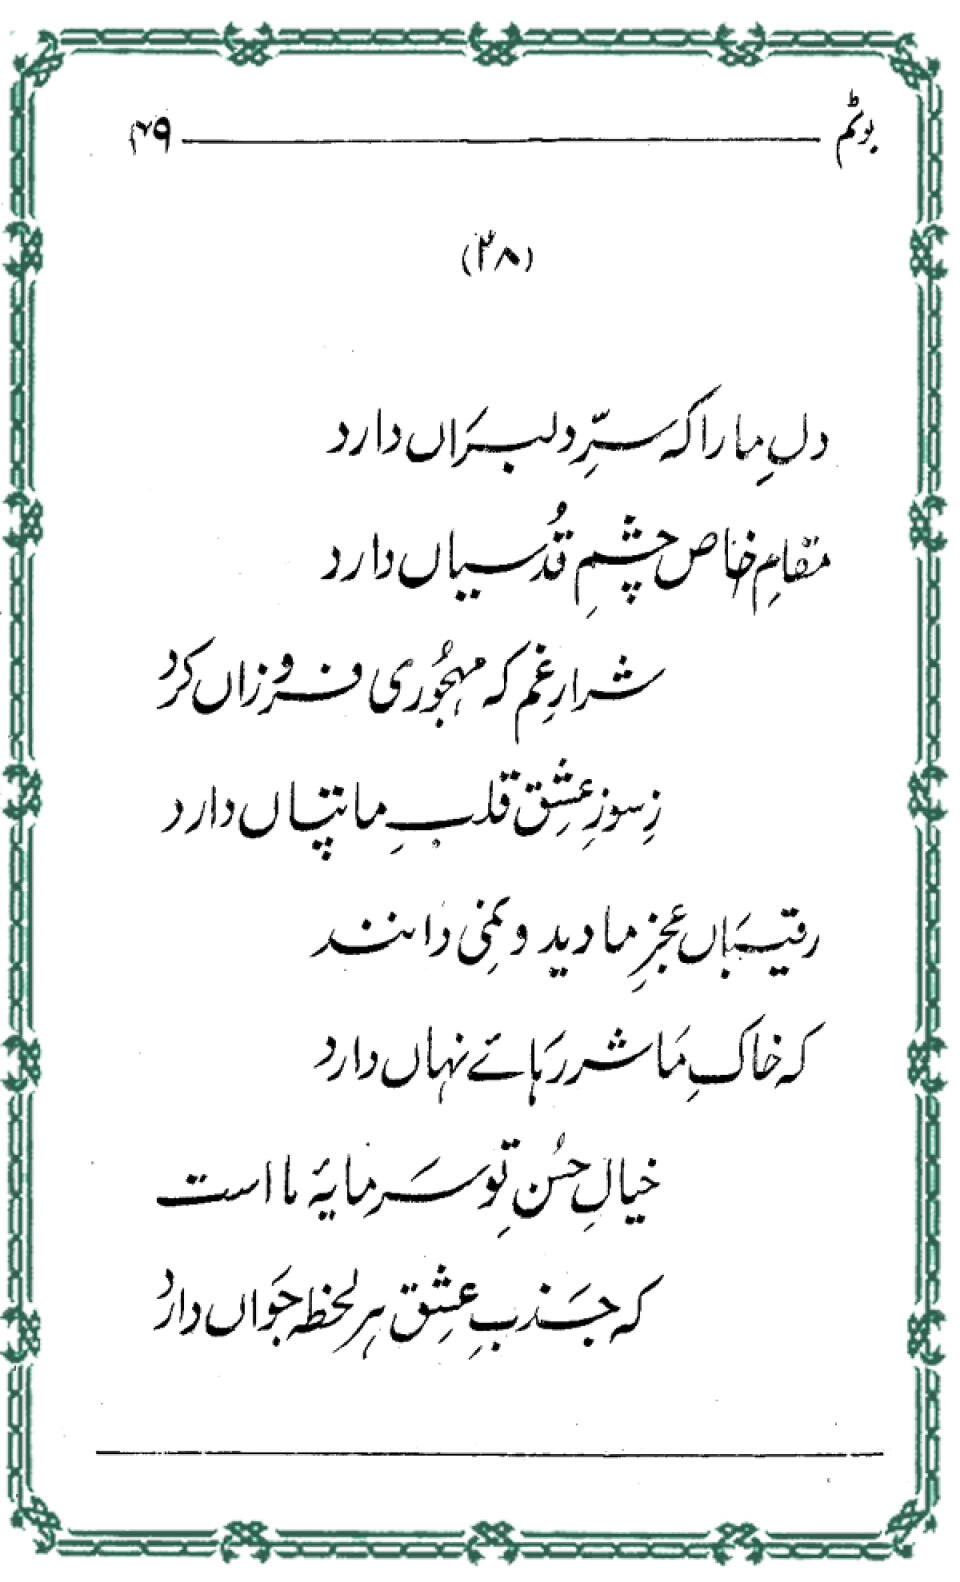 بوٹم ۴۹
(۲۸)
دلِ ما را کہ سرِّ دلبراں دارد
مقامِ خاص چشمِ قُدسیاں دارد
شرارِ غم کہ مہجُوری فروزاں کرد
زِ سوزِ عشِق قلبِ ما تپاں دارد
رقیباں عجزِ ما دید و نمِی دانند
کہ خاکِ مَا شرر ہَائے نہاں دارد
خیالِ حُسنِ تِو سَرمایۂ ما است
کہ جَذبِ عشِق ہر لحظہ جَواں دارد